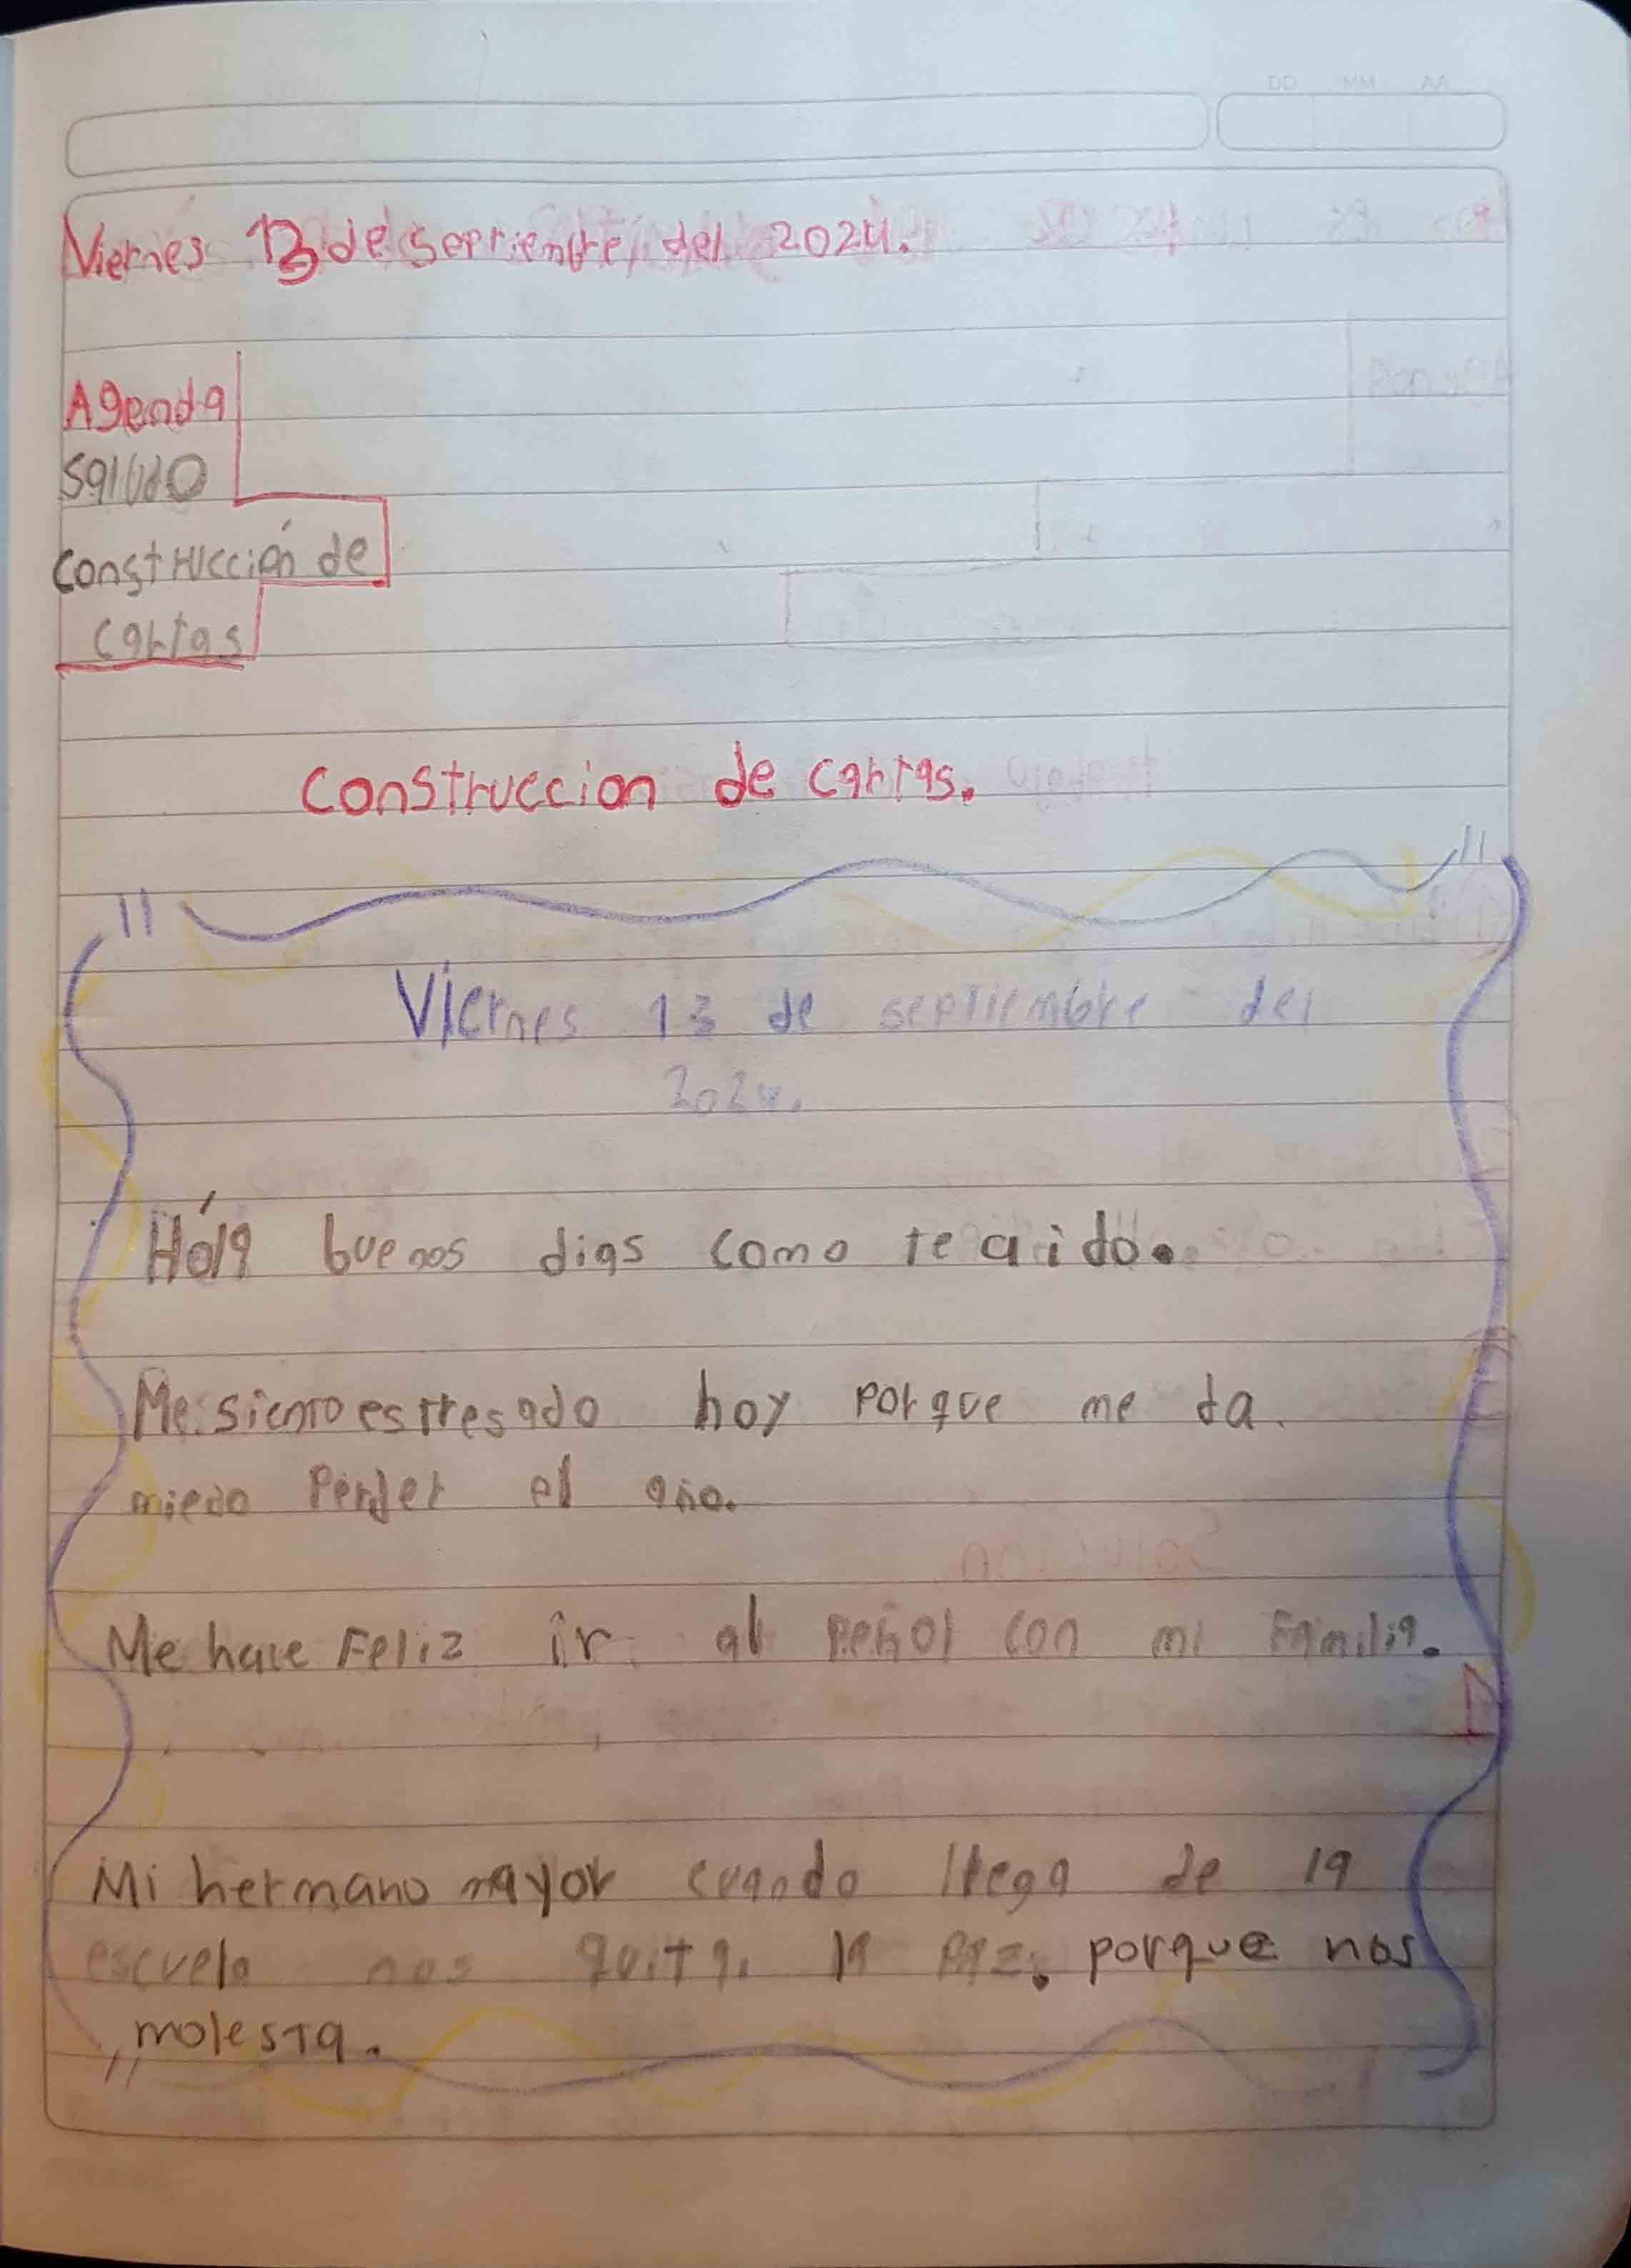 DD MM AA
Viernes 13 de septiembre, del 2024.
Agenda
Saludo
Construcción de
cartas
Construccion de cartas.
Viernes 13 de septiembre del
2024.
Hóla buenos dias como te a ido.
Me siento estresado hoy porque me da
miedo Perder el año.
Me hace Feliz ir al peñol con mi Familia.
Mi hermano mayor cuando llega de la
escuela nos quita la paz. porque nos
molesta.